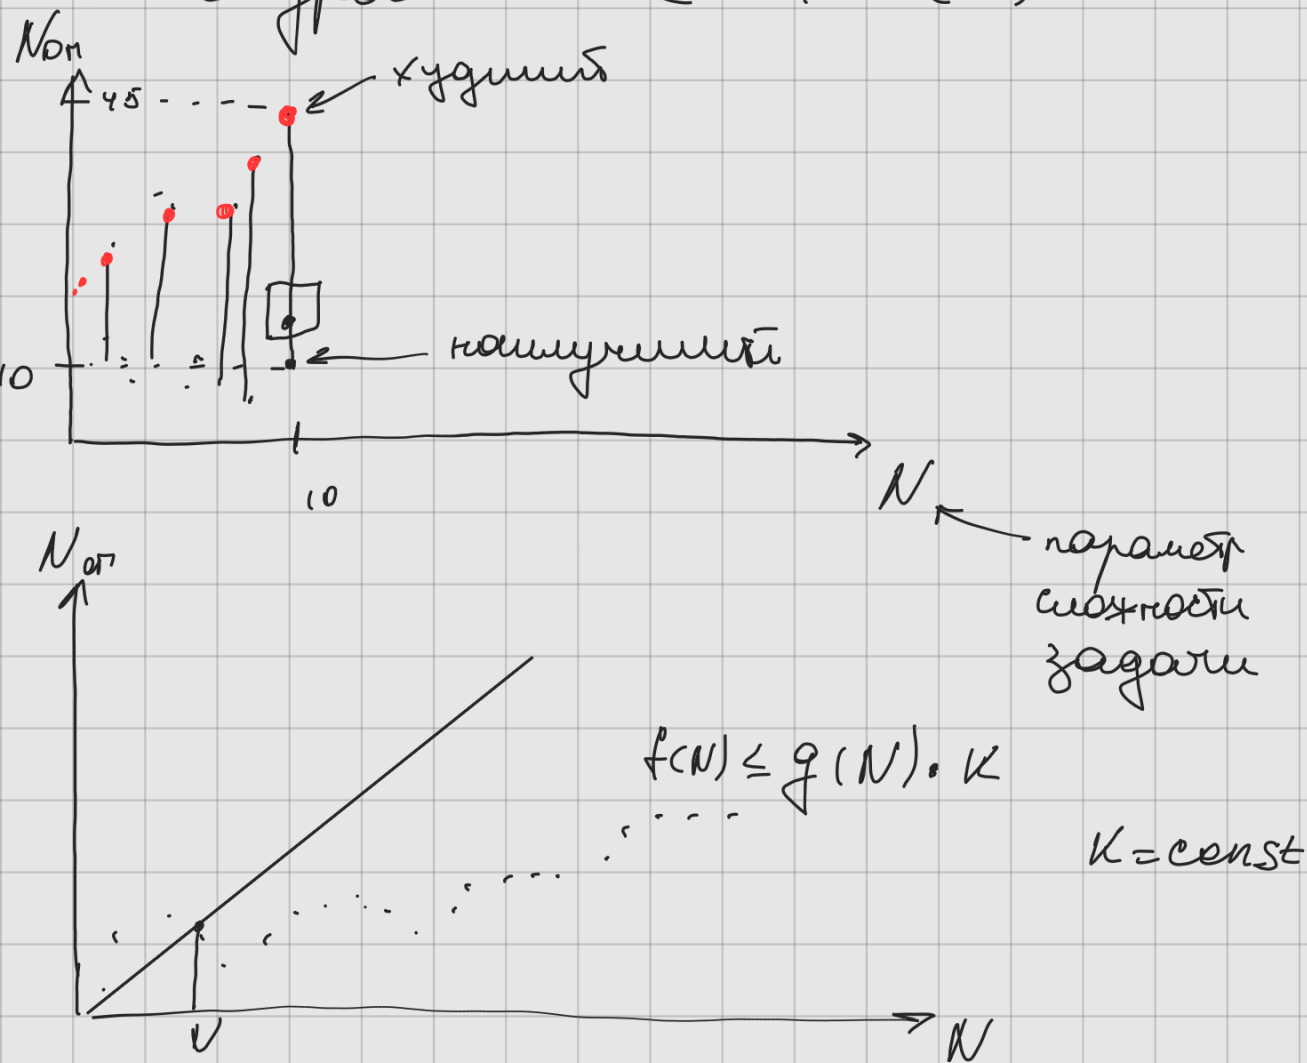 Nоп
45
худший
10
наилучший
10
N
параметр
сложности
задачи
Nоп
f(N) ≤ g(N) · K
K = const
V
N